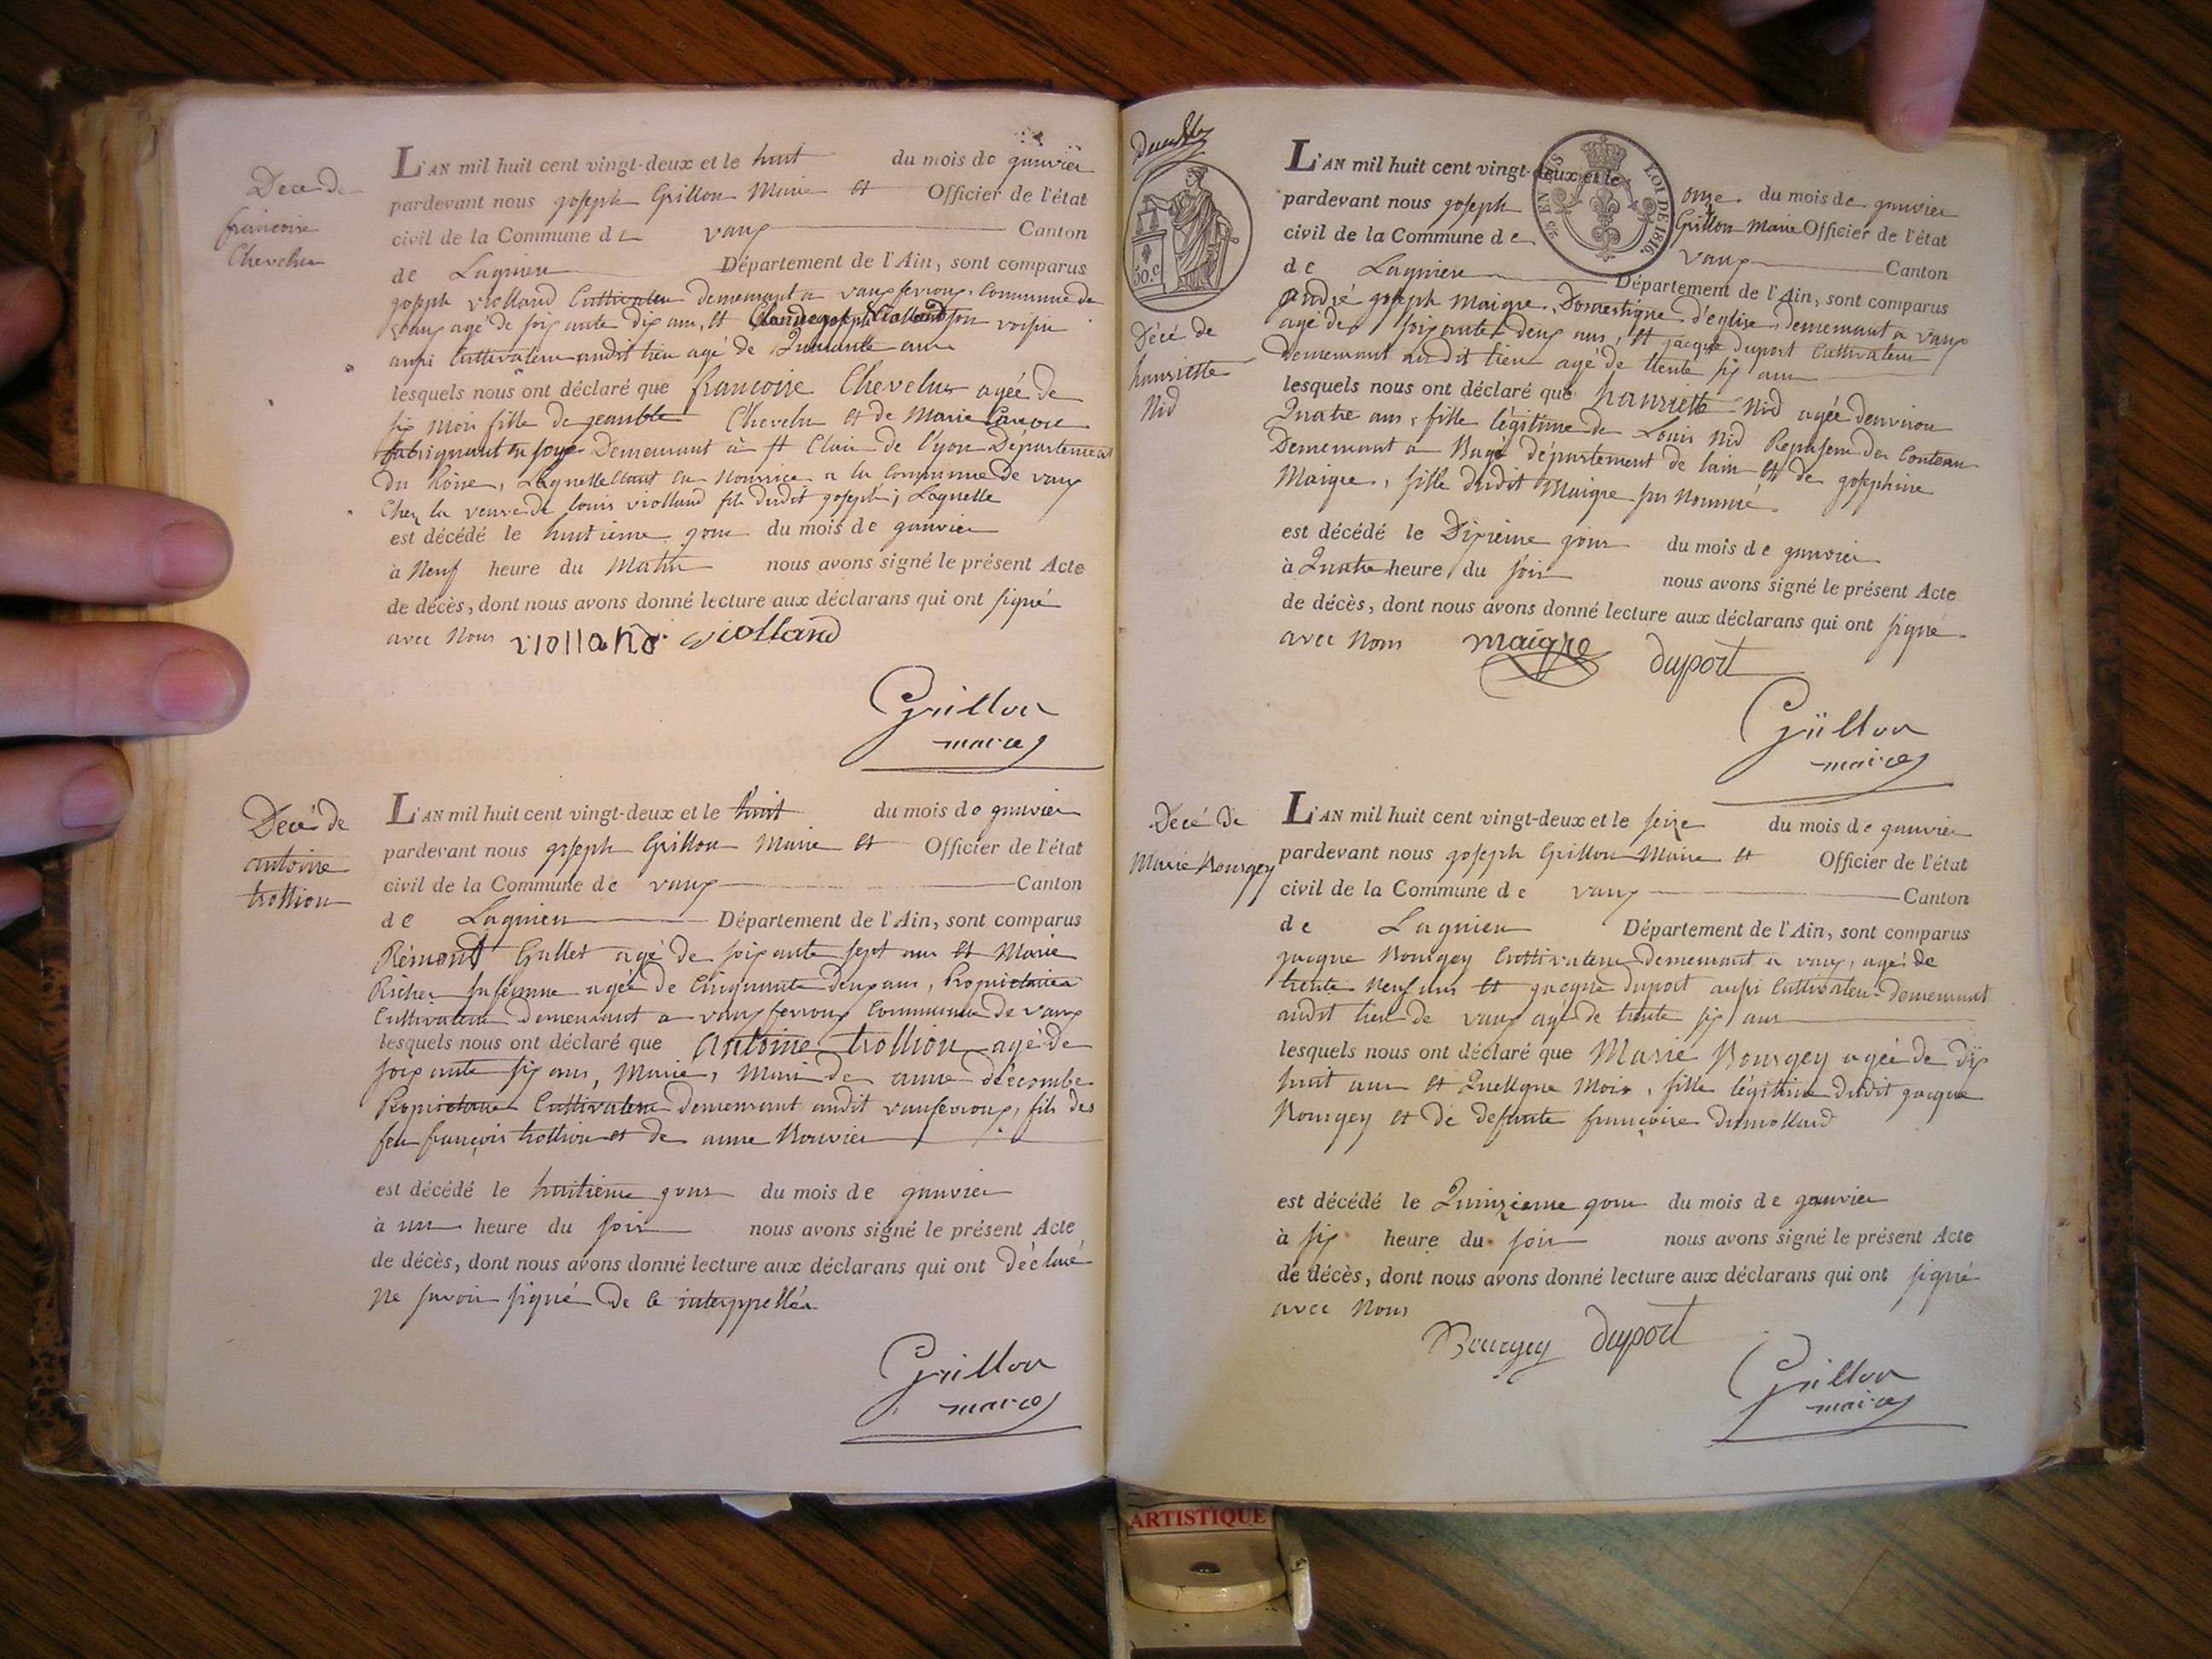 Decé de
francoise
Chevelu
L'AN mil huit cent vingt-deux et le huit du mois de janvier
pardevant nous joseph Grillon Maire et Officier de l'état
civil de la Commune de vaux Canton
de Lagnieu Département de l'Ain, sont comparus
joseph violland Cultivateur demeurant a vauxfevroux, Commune de
vaux agé de soixante dix ans, et Claude joseph violland son voisin
aussi Cultivateur audit lieu agé de Quarante ans
lesquels nous ont déclaré que francoise Chevelu agée de
six mois fille de Chevelu et de Marie
fabriquant en soye Demeurant à st Clair de lyon Département
du Rône, Laquelle etant en Nourrice a la Commune de vaux
Chez la veuve de louis violland fils dudit joseph, Laquelle
est décédé le huitieme jour du mois de janvier
à Neuf heure du Matin nous avons signé le présent Acte
de décès, dont nous avons donné lecture aux déclarans qui ont signé
avec Nous violland violland
Grillon
maire
Decé de
antoine
trollion
L'AN mil huit cent vingt-deux et le huit du mois de janvier
pardevant nous joseph Grillon Maire et Officier de l'état
civil de la Commune de vaux Canton
de Lagnieu Département de l'Ain, sont comparus
Rémont Gullet agé de soixante sept ans et Marie
Richer sa femme agée de Cinquante deux ans, Propriétaires
Cultivateur demeurant a vauxfevroux Commune de vaux
lesquels nous ont déclaré que antoine trollion agé de
soixante six ans, Marié, Mari de anne décombe
Propriétaire Cultivateur demeurant audit vauxfevroux, fils des
feu françois trollion et de anne Bouvier
est décédé le huitieme jour du mois de janvier
à un heure du soir nous avons signé le présent Acte
de décès, dont nous avons donné lecture aux déclarans qui ont déclaré
Ne savoir signé de ce interppellés
Grillon
maire
50.c
LOI DE 1816.
Décé de
hanriette
Nid
L'AN mil huit cent vingt-deux et le onze du mois de janvier
pardevant nous joseph Grillon Maire Officier de l'état
civil de la Commune de vaux Canton
de Lagnieu Département de l'Ain, sont comparus
andré joseph Maigre, Domestique d'eglise, demeurant a vaux
agé de soixante deux ans, et jacque duport Cultivateur
Demeurant audit lieu agé de trente six ans
lesquels nous ont déclaré que hanriette Nid agée denviron
Quatre ans, fille légitime de Louis Nid Repasseur de Couteau
Demeurant a Bugé département de lain et de josephine
Maigre, fille dudit Maigre sus Nommé
est décédé le Dixieme jour du mois de janvier
à Quatre heure du soir nous avons signé le présent Acte
de décès, dont nous avons donné lecture aux déclarans qui ont signé
avec Nous maigre duport
Grillon
maire
Decé de
Marie Bourgey
L'AN mil huit cent vingt-deux et le seize du mois de janvier
pardevant nous joseph Grillon Maire et Officier de l'état
civil de la Commune de vaux Canton
de Lagnieu Département de l'Ain, sont comparus
jacque Bourgey Cultivateur demeurant a vaux, agé de
trente Neuf ans et jacque duport aussi Cultivateur demeurant
audit lieu de vaux agé de trente six ans
lesquels nous ont déclaré que Marie Bourgey agée de dix
huit ans et Quellque Mois, fille légitime dudit jacque
Bourgey et de defunte françoise dumollard
est décédé le Quinzieme jour du mois de janvier
à six heure du soir nous avons signé le présent Acte
de décès, dont nous avons donné lecture aux déclarans qui ont signé
avec Nous
Bourgey duport
Grillon
maire
ARTISTIQUE